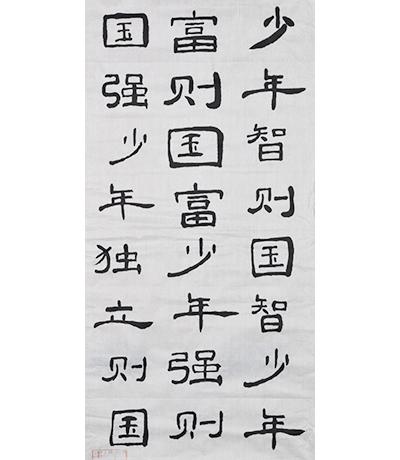 少年智则国智少年
富则国富少年强则
国强少年独立则国